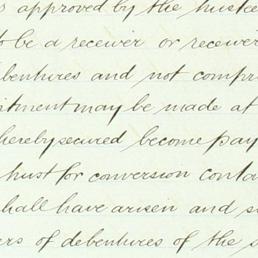 s approved by the trustee
to be a receiver or receiver
debentures and not compr
intment may be made at
hereby secured become pay
trust for conversion conta
shall have arisen and s
ers of debentures of the s